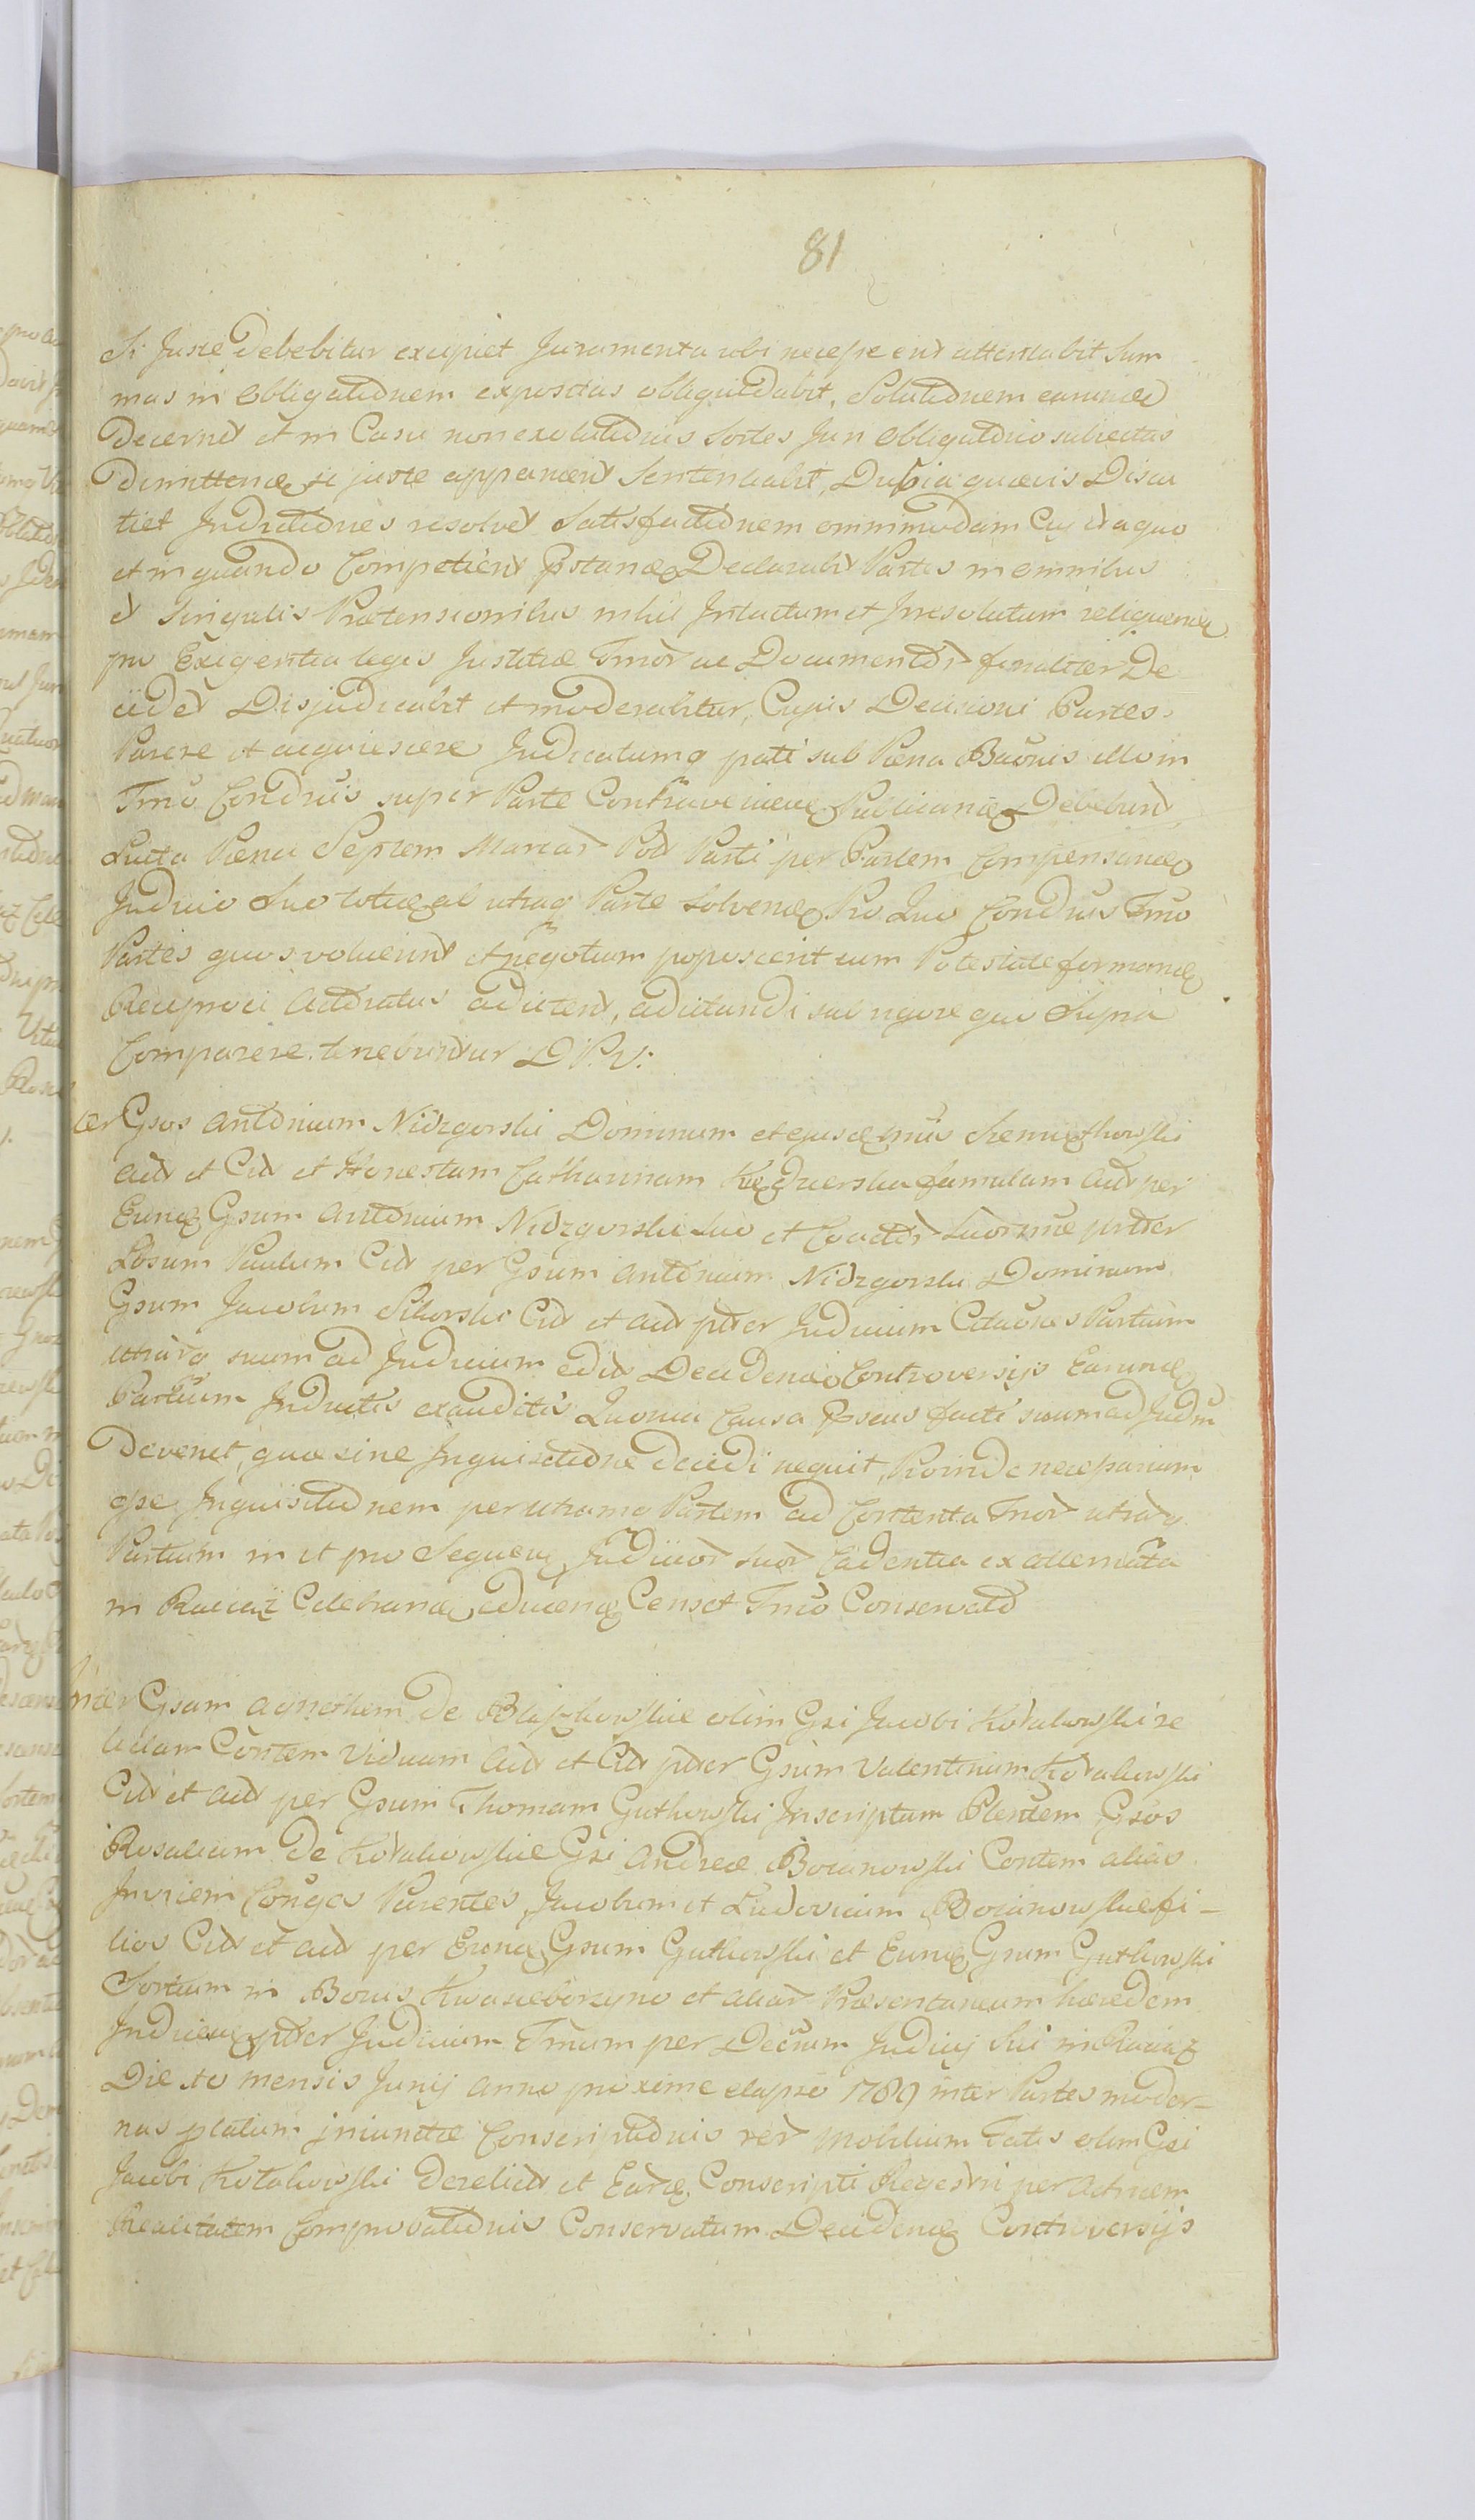 81
Si Juste Debebitur excipiet Juramenta ubi necesse erit attentabit Sum
mas in Obligationem expositas obliquidabit, Solutionem earund
Decernet et in Casu non exolutionis Sortes Juri Obligatorio subiectas
Dimittend si juste apparuerit Sententiabit, Dubia quaevis Discu
tiet Inductiones resolvet Satisfactionem omnimodam Cui et a quo
et in quando Competierit pstand Declarabit Partes in omnibus
et singulis Praetensionibus nihil Intactum et Irresolutum reliquend
pro Exigentia legis Justitiae Tmor ac Documentor finaliter De
cidet Disjudicabit et moderabitur, Cujus Decisioni Partes
Parere et acquiescere Judicatumq pati sub Paena Baonis illo in
Tmo Condnis super Parte Contraveniend Publicand Debebunt
Lucta Paena Septem Marcar Pol Parti per Partem Compensand
Judicio Suo totid ab utraq Parte Solvend Pro Quo Condnis Tmo
Partes quos voluerint et negotium poposcerit cum Potestate formand
Reciproci Actoratus adcitent, adcitandi sub rigore quo Supra
Comparere tenebuntur D.P.V:
ter Gsos Antonium Nidzgorski Dominum et ejusd
Act et Cit et Honestam Catharinam famulam Act per
Eund Gsum Antonium Nidzgorski suo et Coactor Suor noe ptter
Lbsum Paulum Cit per Gsum Antonium Nidzgorski Dominum
Gsum Jacobum Sikorski Cit et Act ptter Judicium Citaones Partium
utrarq suum ad Judicium edit Decidend Controversijs Earund
Partium Inductis exauditis Quonia Causa Pseus facti suum ad Judm
Devenit, quae sine Inquisitione Decidi nequit, Proinde necessarium
esse Inquisitionem per utramq Partem ad Contenta Tmor utrarq
Partium in et pro Sequen Judicior suor Cadentia ex alternata
in Raciąż Celebrand educend Censet Tmo Conservato
Inter Gsam Agnethem De olim Gsi Jacobi Kotakowski re
lictam Contem Viduam Act et Cit ptter Gsum Valentinum Kotakowski
Cit et Act per Gsum Thomam Gutkowski Inscriptum Plentem Gsos
Rosaliam De Kotakowskie Gsi Andreae Bocianowski Contem alias
Invicem Conges Parentes, Jacobum et Ludovicum Bocianowskie fi-
lios Cit et Act per Eund Gsum Gutkowski et Eund Gsum Gutkowski
Sortium in Bonis Kwasieborzyno et aliar Praesentaneum haeredem
Judicen ptter Judicium Tmum per Decum Judicij Sui in Raciąż
Die 10 mensis Junij Anno proxime elapso 1789 inter Partes moder-
nas platum iniunctae Conscriptionis rer mobilium Fatis olim Gsi
Jacobi Kotakowski Derelict et Eard Conscripti Regestri per Actricem
Realitatem Comprobationis Conservatum Decidend Controversijs